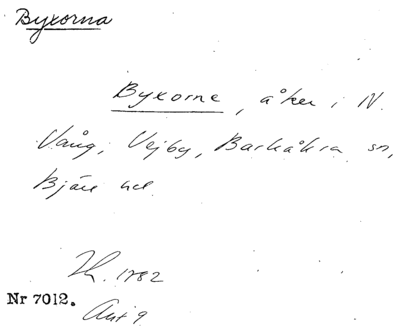 Byxorna
Byxorne, åker i N.
Vång, Vejby, Barkåkra sn,
Bjäre hd.
1782
Nr 7012.
Akt 9